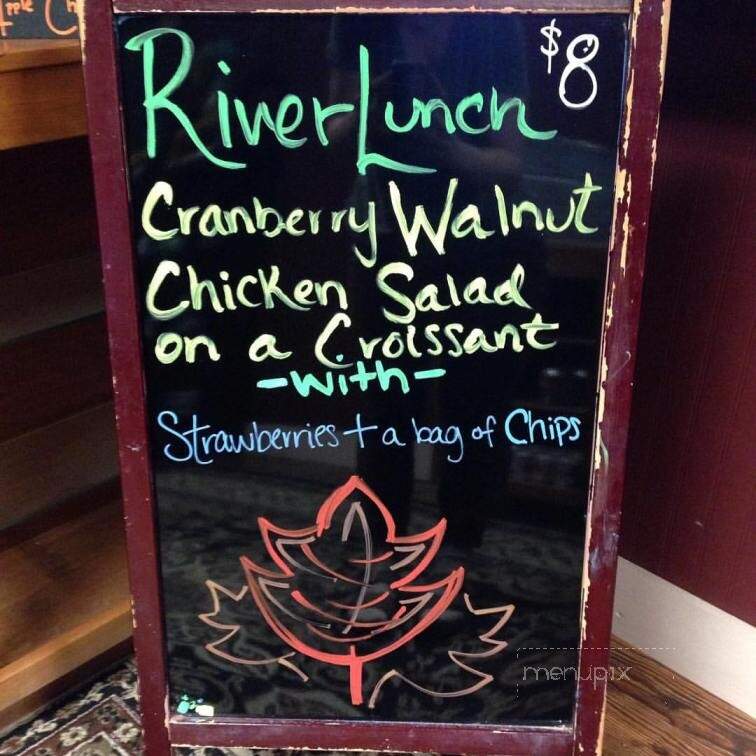 $8
River Lunch
Cranberry Walnut
Chicken Salad
on a Croissant
-with-
Strawberries + a bag of Chips
menupix